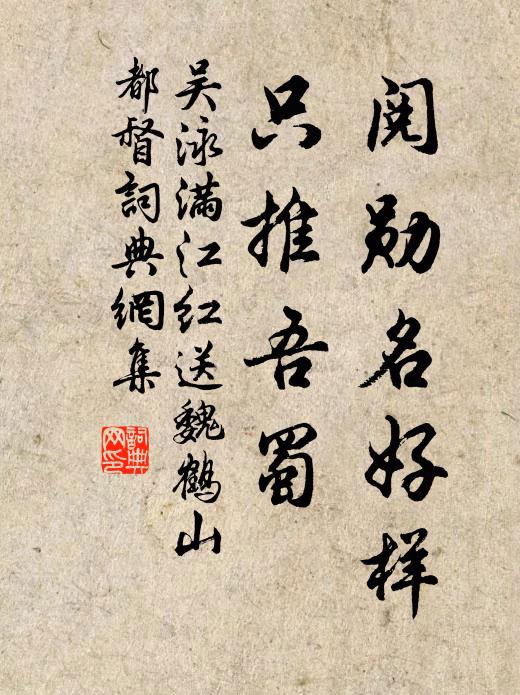 阅勋名好样
只推吾蜀
吴泳满江红送魏鹤山
都督词典网集
詞典网印